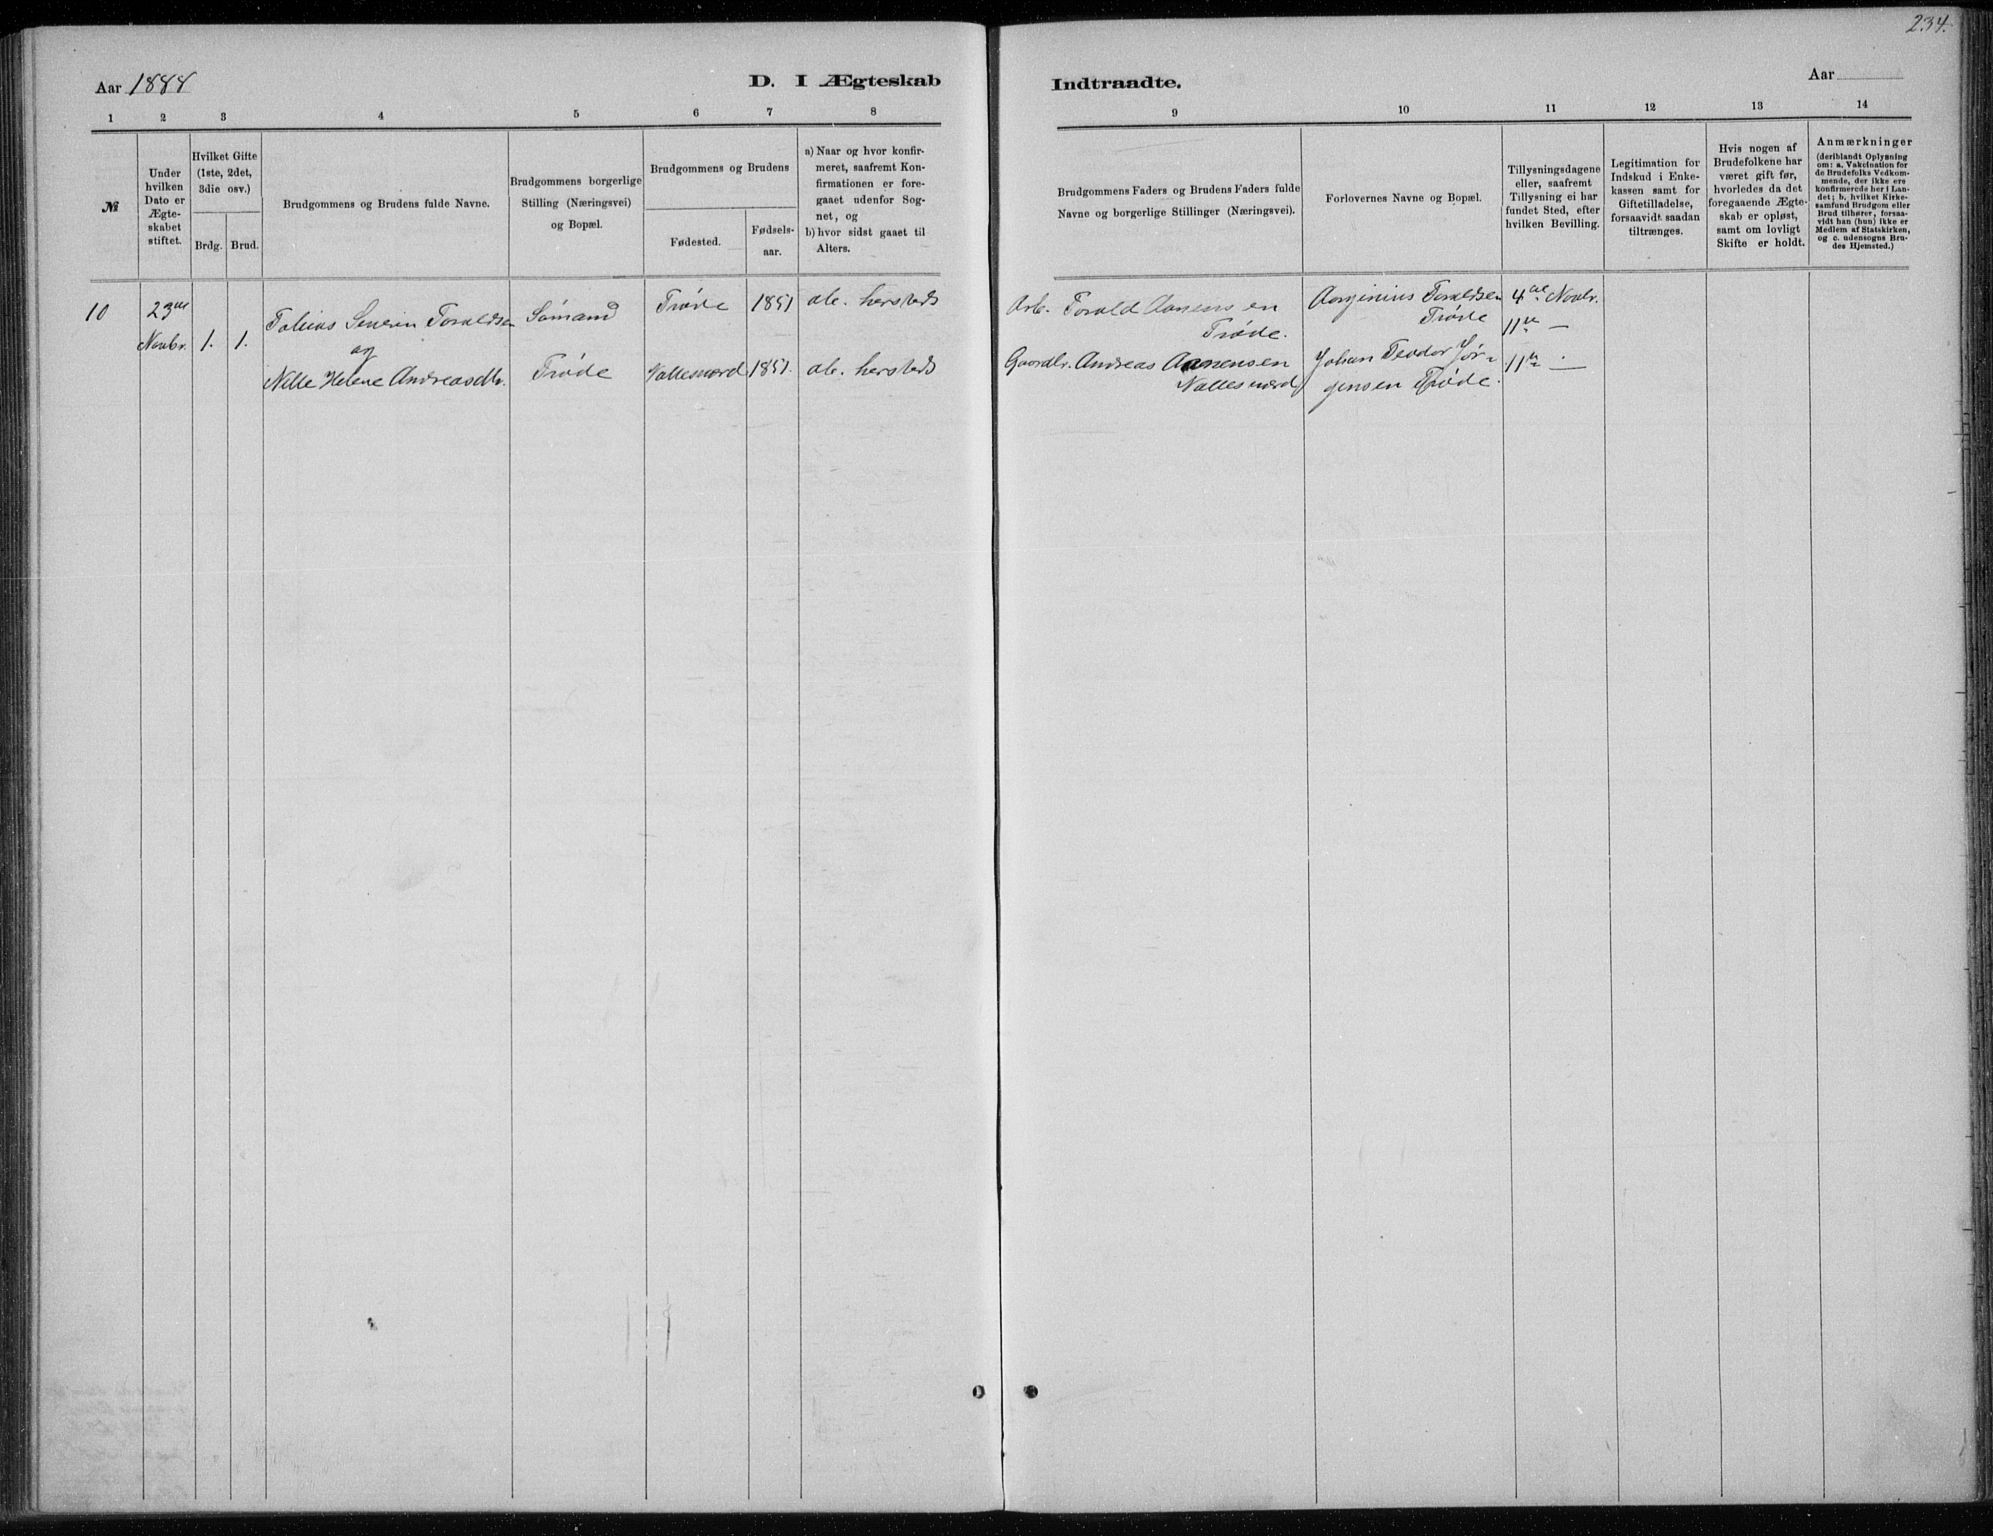 234.
Aar 1888
D. I Ægteskab
Indtraadte.
Aar
1 2 3 4 5 6 7 8
9 10 11 12 13 14
№
Under
hvilken
Dato er
Ægte-
skabet
stiftet.
Hvilket Gifte
(1ste, 2det,
3die osv.)
Brdg. Brud.
Brudgommens og Brudens fulde Navne.
Brudgommens borgerlige
Stilling (Næringsvei)
og Bopæl.
Brudgommens og Brudens
Fødested.
Fødsels-
aar.
a) Naar og hvor konfir-
meret, saafremt Kon-
firmationen er fore-
gaaet udenfor Sog-
net, og
b) hvor sidst gaaet til
Alters.
Brudgommens Faders og Brudens Faders fulde
Navne og borgerlige Stillinger (Næringsvei).
Forlovernes Navne og Bopæl.
Tillysningsdagene
eller, saafremt
Tillysning ei har
fundet Sted, efter
hvilken Bevilling.
Legitimation for
Indskud i Enke-
kassen samt for
Giftetilladelse,
forsaavidt saadan
tiltrænges.
Hvis nogen af
Brudefolkene har
været gift før,
hvorledes da det
foregaaende Ægte-
skab er opløst,
samt om lovligt
Skifte er holdt.
Anmærkninger
(deriblandt Oplysning
om: a. Vakcination for
de Brudefolks Vedkom-
mende, der ikke ere
konfirmerede her i Lan-
det; b. hvilket Kirke-
samfund Brudgom eller
Brud tilhører, forsaa-
vidt han (hun) ikke er
Medlem af Statskirken,
og c. udensogns Bru-
des Hjemsted.)
10
23de
Novbr.
1. 1.
Tobias Severin Toraldsen
og
Nille Helene Andreasdtr.
Sömand
Trøde
Trøde 1851 alt. hersteds
Vallesværd 1851. alt. hersteds
Arb. Torald Aanensen
Trøde.
Gaardbr. Andreas Aanensen
Vallesværd
Aorginius Toraldsen
Trøde
Johan Teodor Jør-
gensen Trøde.
4de Novbr.
11te —
11te —